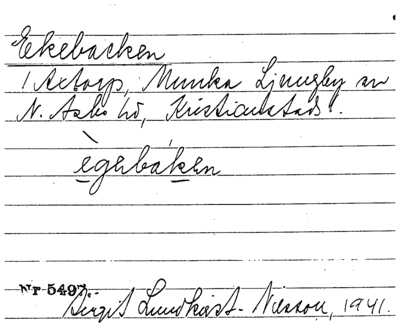 Ekebacken
1 Axtorp, Munka Ljungby sn
N. Asbo hd, Kristianstads l.
ègerbáken
Nr 5497.
Birgit Lundkvist-Nilsson, 1941.